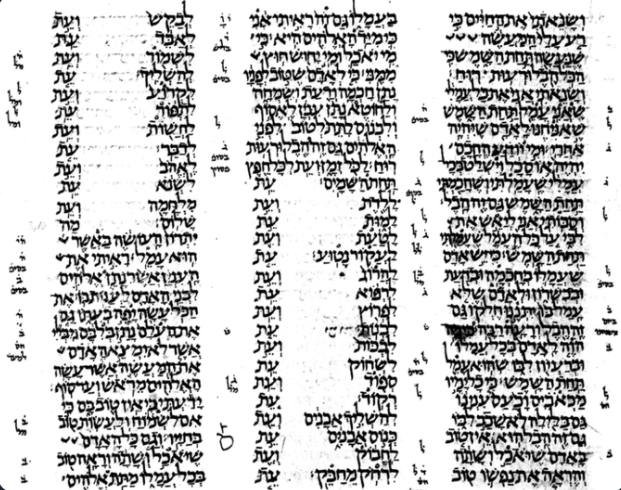 ושנאתי את החיים כי
רע עלי המעשה
שנעשה תחת השמש כי
הכל הבל ורעות רוח
ושנאתי אני את כל עמלי
שאני עמל תחת השמש
שאניחנו לאדם שיהיה
אחרי ומי יודע החכם
יהיה או סכל וישלט בכל
עמלי שעמלתי ושחכמתי
תחת השמש גם זה הבל
וסבותי אני ליאש את
לבי על כל העמל שעמלתי
תחת השמש כי יש אדם
שעמלו בחכמה ובדעת
ובכשרון ולאדם שלא
עמל בו יתננו חלקו גם
זה הבל ורעה רבה כי מה
הוה לאדם בכל עמלו
וברעיון לבו שהוא עמל
תחת השמש כי כל ימיו
מכאבים וכעס ענינו
גם בלילה לא שכב לבו
גם זה הבל הוא אין טוב
באדם שיאכל ושתה
והראה את נפשו טוב
בעמלו גם זה ראיתי אני
כי מיד האלהים היא כי
מי יאכל ומי יחוש חוץ
ממני כי לאדם שטוב לפניו
נתן חכמה ודעת ושמחה
ולחוטא נתן ענין לאסוף
ולכנוס לתת לטוב לפני
האלהים גם זה הבל ורעות
רוח לכל זמן ועת לכל חפץ
תחת השמים עת
ללדת ועת
למות עת
לטעת ועת
לעקור נטוע עת
להרוג ועת
לרפוא עת
לפרוץ ועת
לבנות עת
לבכות ועת
לשחוק עת
ספוד ועת
רקוד עת
להשליך אבנים ועת
כנוס אבנים עת
לחבוק ועת
לרחק מחבק עת
לבקש ועת
לאבד עת
לשמור ועת
להשליך עת
לקרוע ועת
לתפור עת
לחשות ועת
לדבר עת
לאהב ועת
לשנא עת
מלחמה ועת
שלום מה
יתרון העושה באשר
הוא עמל ראיתי את
הענין אשר נתן אלהים
לבני האדם לענות בו את
הכל עשה יפה בעתו גם
את העלם נתן בלבם מבלי
אשר לא ימצא האדם
את המעשה אשר עשה
האלהים מראש ועד סוף
ידעתי כי אין טוב בם כי
אם לשמוח ולעשות טוב
בחייו וגם כל האדם
שיאכל ושתה וראה טוב
בכל עמלו מתת אלהים